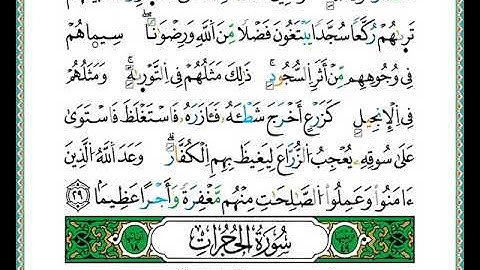 تَرَىٰهُمْ رُكَّعًا سُجَّدًا يَبْتَغُونَ فَضْلًا مِّنَ ٱللَّهِ وَرِضْوَٰنًا ۖ سِيمَاهُمْ
فِى وُجُوهِهِم مِّنْ أَثَرِ ٱلسُّجُودِ ۚ ذَٰلِكَ مَثَلُهُمْ فِى ٱلتَّوْرَىٰةِ ۚ وَمَثَلُهُمْ
فِى ٱلْإِنجِيلِ كَزَرْعٍ أَخْرَجَ شَطْـَٔهُۥ فَـَٔازَرَهُۥ فَٱسْتَغْلَظَ فَٱسْتَوَىٰ
عَلَىٰ سُوقِهِۦ يُعْجِبُ ٱلزُّرَّاعَ لِيَغِيظَ بِهِمُ ٱلْكُفَّارَ ۗ وَعَدَ ٱللَّهُ ٱلَّذِينَ
ءَامَنُوا۟ وَعَمِلُوا۟ ٱلصَّٰلِحَٰتِ مِنْهُم مَّغْفِرَةً وَأَجْرًا عَظِيمًۢا ٢٩
سُورَةُ الْحُجُرَاتِ